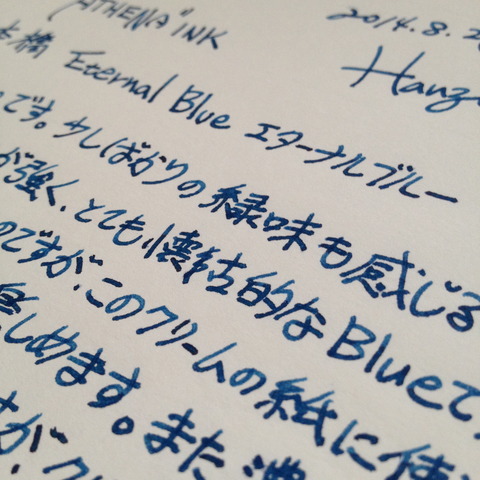 ATHENA" INK 2014.8.2
橋 Eternal Blue エターナルブルー Hanz
です。少しばかりの緑味も感じる
が強く、とても懐古的なBlueで
のですが、このクリームの紙に使
しめます。また濃
が、ク